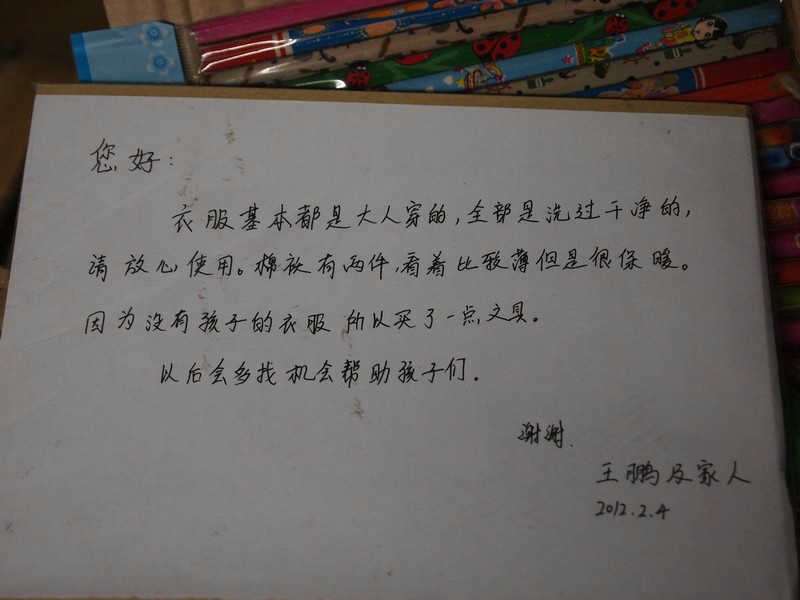 您好:
衣服基本都是大人穿的,全部是洗过干净的,
请放心使用。棉袄有两件,看着比较薄但是很保暖。
因为没有孩子的衣服 所以买了一点文具。
以后会多找机会帮助孩子们。
谢谢.
王鹏及家人
2012.2.4